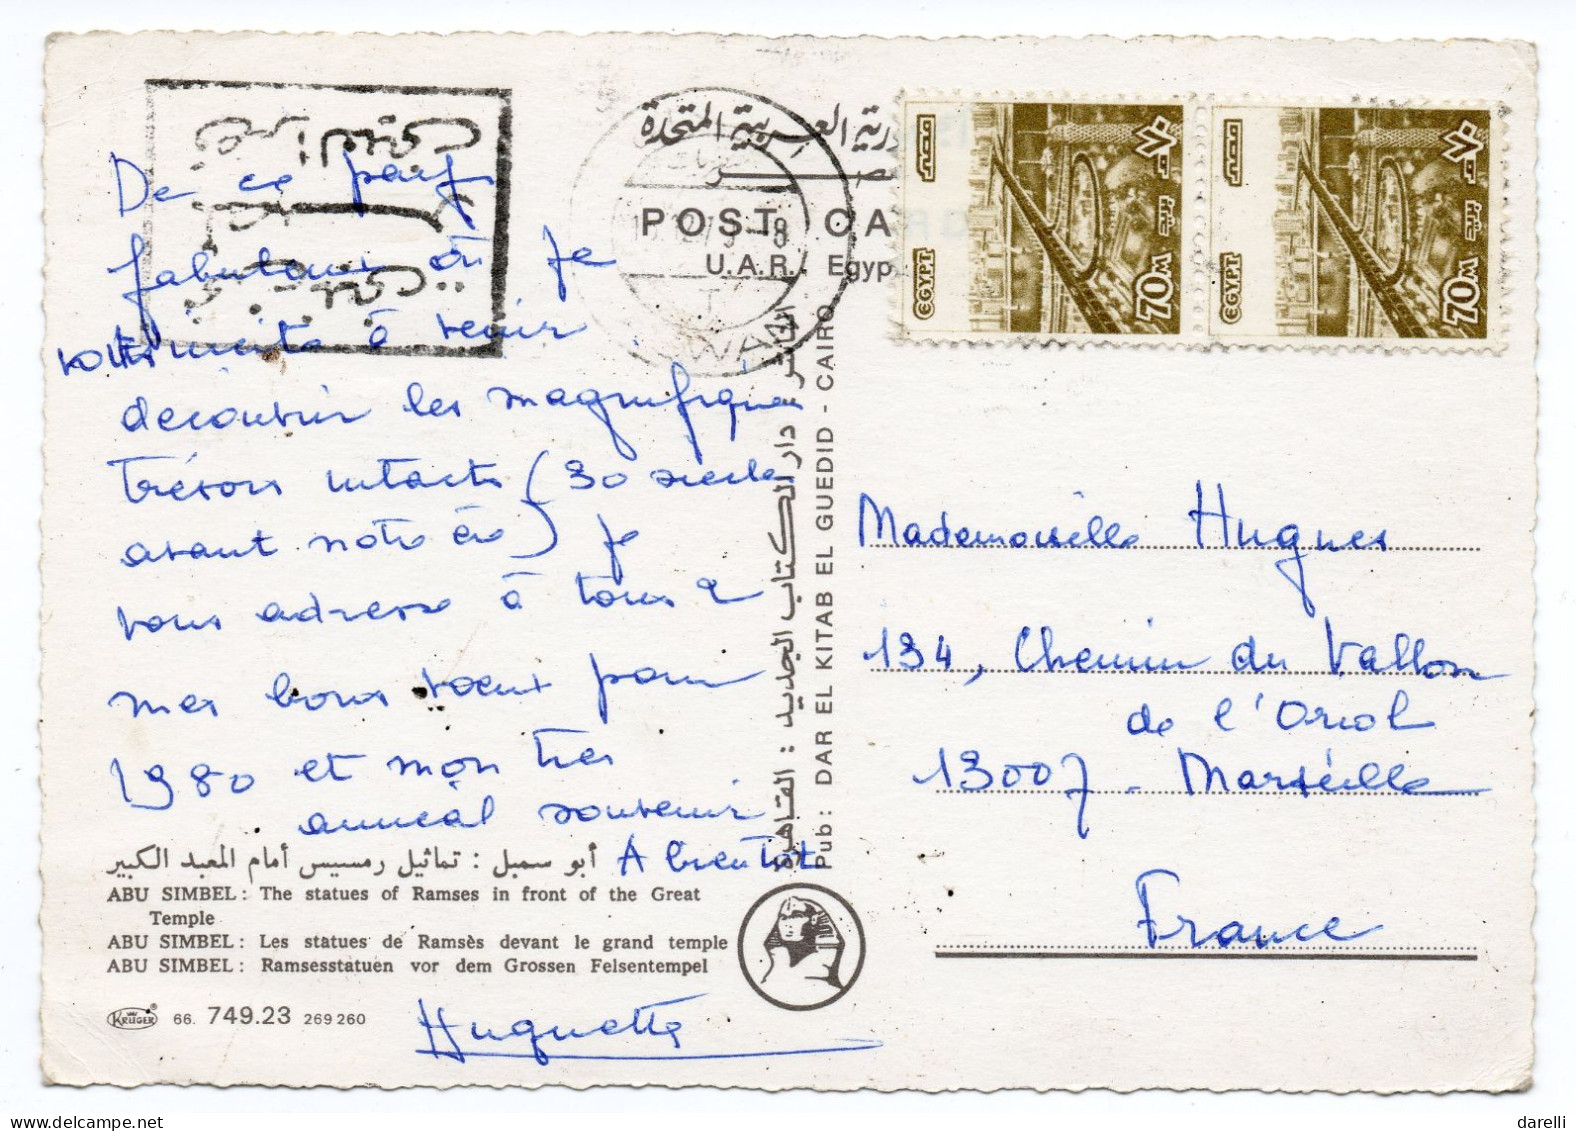 De ce pays
fabuleux où je
vous invite à venir
découvrir les magnifiques
trésors intacts (30 siècles
avant notre ère) je
vous adresse à tous 2
mes bons voeux pour
1980 et mon très
amical souvenir
A bientôt
Huguette
أبو سمبل : تماثيل رمسيس أمام المعبد الكبير
ABU SIMBEL: The statues of Ramses in front of the Great
Temple
ABU SIMBEL: Les statues de Ramsès devant le grand temple
ABU SIMBEL: Ramsesstatuen vor dem Grossen Felsentempel
KRÜGER 66. 749.23 269 260
العربية المتحدة
POST CA
U.A.R. Egyp
WAN
القاهرة دار الكتاب الجديد : القاهرة
Pub: DAR EL KITAB EL GUEDID - CAIRO
مصر
EGYPT
٧٠
بريد
70M
مصر
EGYPT
٧٠
بريد
70M
Mademoiselle Hugues
134, Chemin du Vallon
de l'Oriol
13007 - Marseille
France
darelli